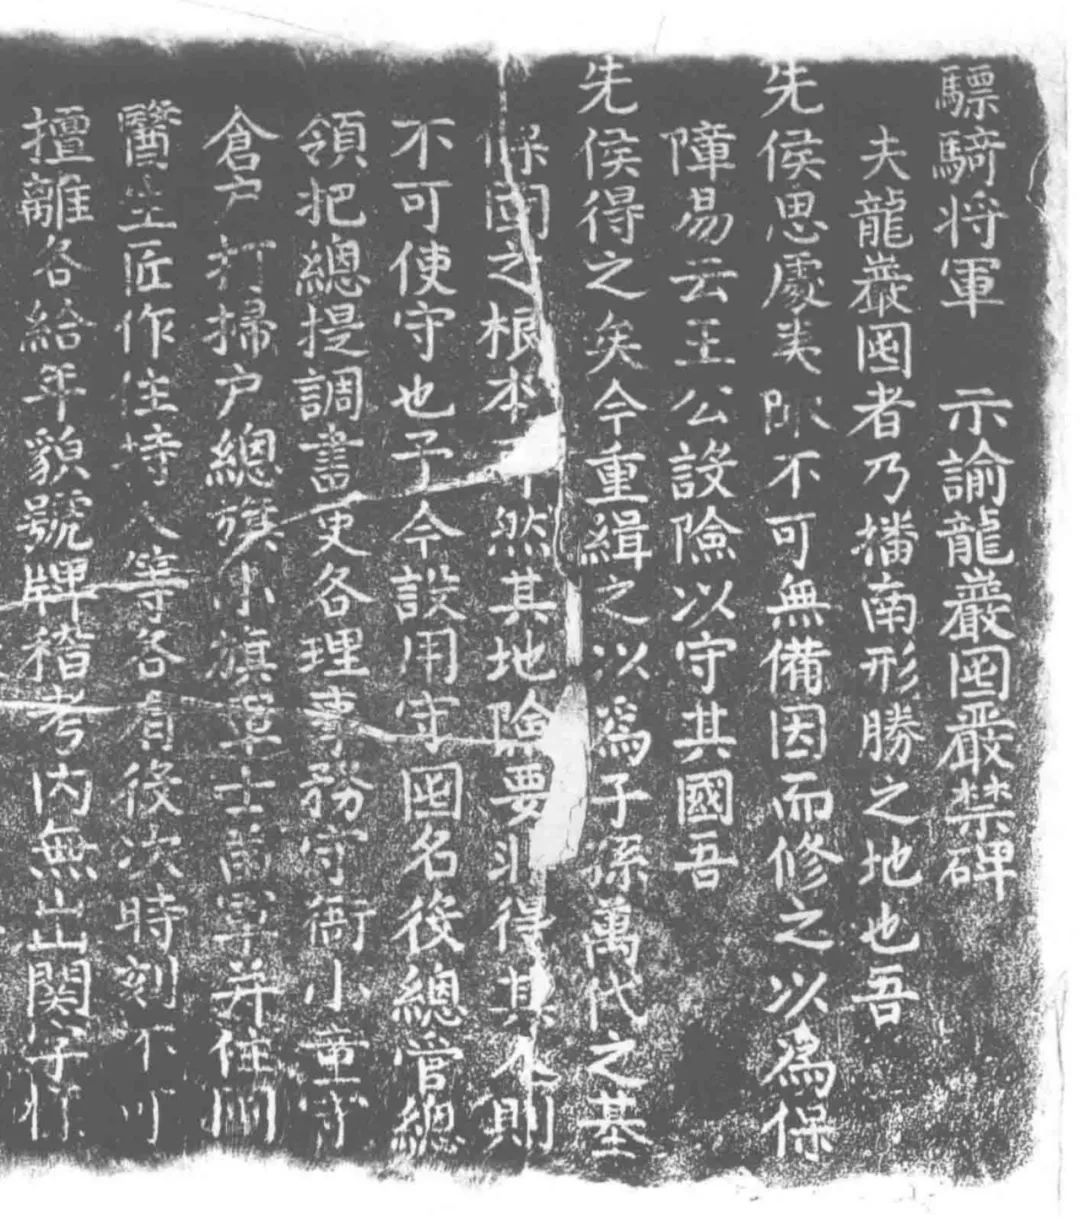 驃騎将軍 示諭龍巖囤嚴禁碑
夫龍巖囤者乃播南形勝之地也吾
先侯思處夷陬不可無備因而修之以為保
障易云王公設險以守其國吾
先侯得之矣今重緝之以為子孫萬代之基
保國之根本耳然其地險要非得其人則
不可使守也予今設用守囤名役總管總
領把總提調書吏各理事務守衙小童守
倉户打掃户總旗小旗軍士苗軍并住囤
醫生匠作住持人等各有役次時刻不可
擅離各給年貌號牌稽考內無出關字牌